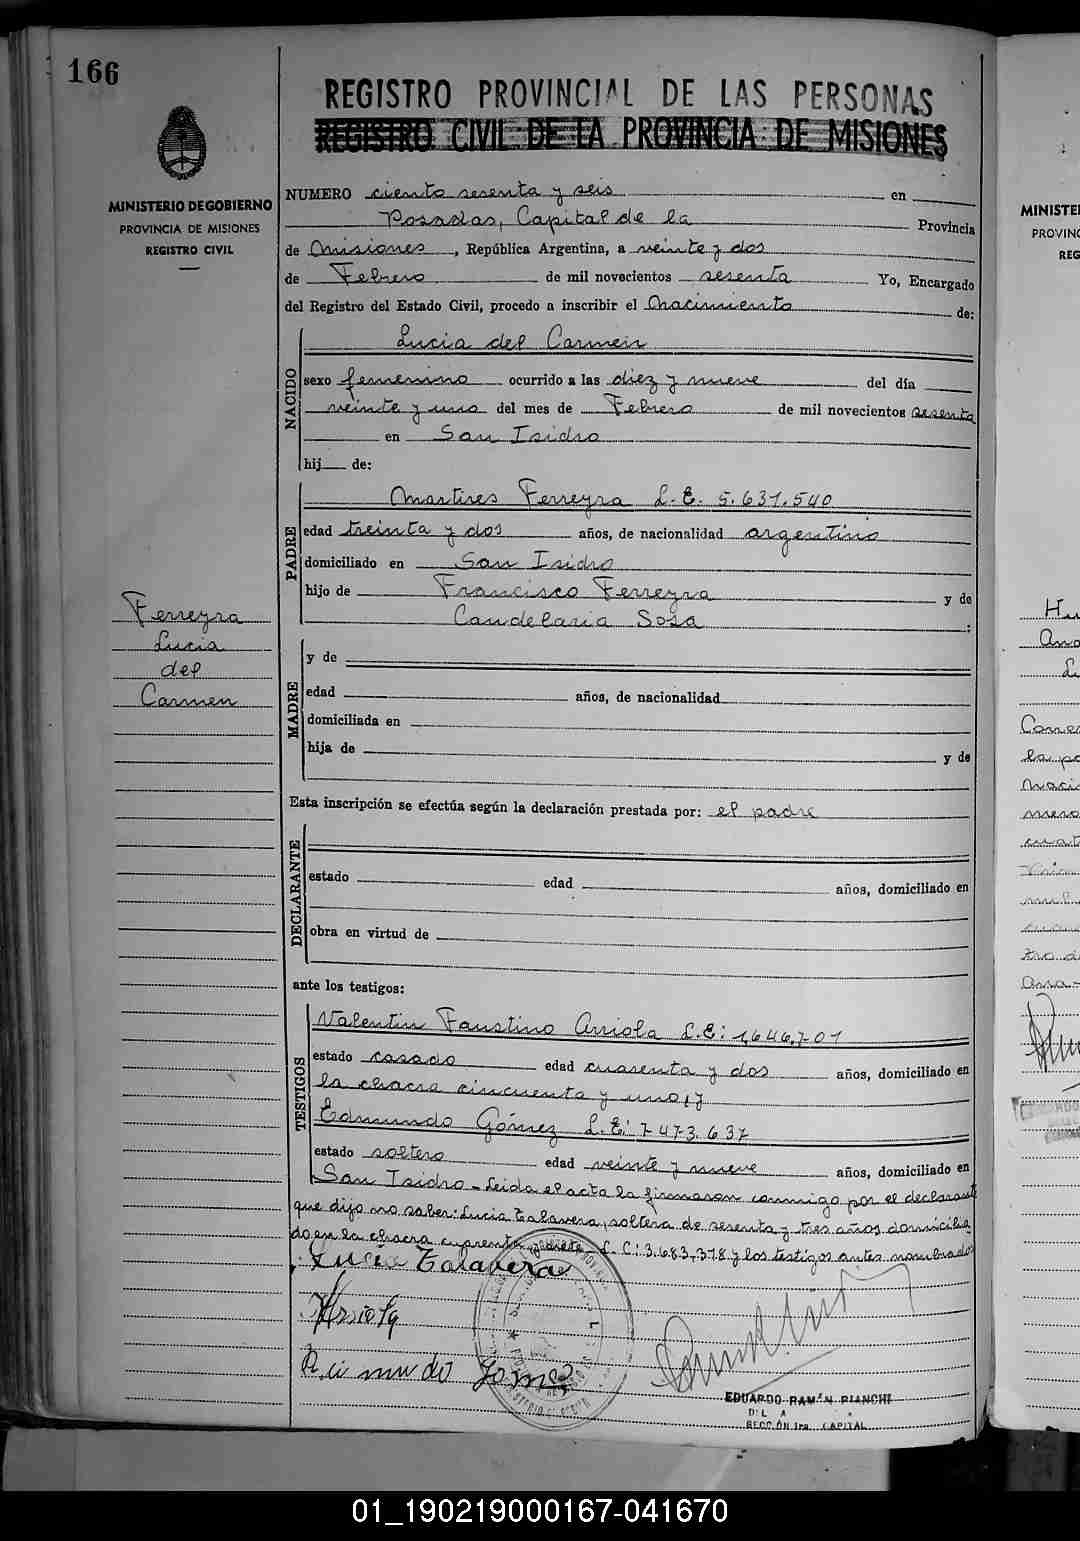 166
REGISTRO PROVINCIAL DE LAS PERSONAS
REGISTRO CIVIL DE LA PROVINCIA DE MISIONES
MINISTERIO DE GOBIERNO
PROVINCIA DE MISIONES
REGISTRO CIVIL
Ferreyra
Lucia
del
Carmen
NUMERO ciento sesenta y seis en
Posadas, Capital de la Provincia
de Misiones, República Argentina, a veinte y dos
de Febrero de mil novecientos sesenta Yo, Encargado
del Registro del Estado Civil, procedo a inscribir el Nacimiento de:
NACIDO
Lucia del Carmen
sexo femenino ocurrido a las diez y nueve del día
veinte y uno del mes de Febrero de mil novecientos sesenta
en San Isidro
hij de:
PADRE
Martires Ferreyra L.E. 5.631.540
edad treinta y dos años, de nacionalidad argentino
domiciliado en San Isidro
hijo de Francisco Ferreyra y de
Candelaria Sosa ;
MADRE
y de
edad años, de nacionalidad
domiciliada en
hija de y de
Esta inscripción se efectúa según la declaración prestada por: el padre
DECLARANTE
estado edad años, domiciliado en
obra en virtud de
ante los testigos:
TESTIGOS
Valentin Faustino Arriola L.E: 1.646.701
estado casado edad cuarenta y dos años, domiciliado en
la chacra cincuenta y uno, y
Edmundo Gómez L.E: 7.473.637
estado soltero edad veinte y nueve años, domiciliado en
San Isidro - Leida el acta la firmaron conmigo por el declarante
que dijo no saber: Lucia Talavera, soltera de sesenta y tres años domicilia
do en la chacra cuarenta y L.C: 3.683.378 y los testigos antes nombrados
Lucia Talavera
Arriola
Gomez
EDUARDO RAMÓN BIANCHI
SECCIÓN 1ra. CAPITAL
MINISTE
PROVINC
REG
01_190219000167-041670